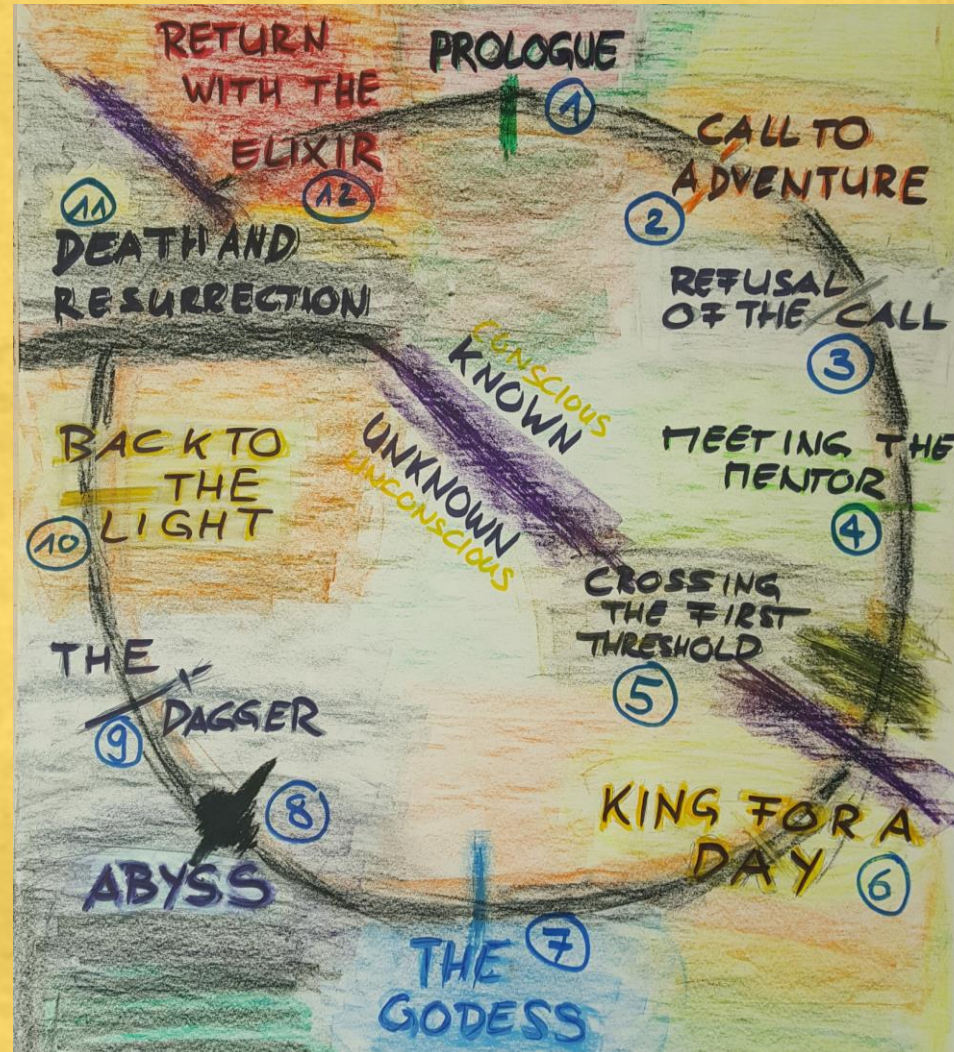 PROLOGUE
1
CALL TO
ADVENTURE
2
REFUSAL
OF THE CALL
3
MEETING THE
MENTOR
4
CROSSING
THE FIRST
THRESHOLD
5
KING FOR A
DAY
6
THE
GODESS
7
ABYSS
8
THE
DAGGER
9
BACK TO
THE
LIGHT
10
DEATH AND
RESURRECTION
11
RETURN
WITH THE
ELIXIR
12
CONSCIOUS
KNOWN
UNKNOWN
UNCONSCIOUS